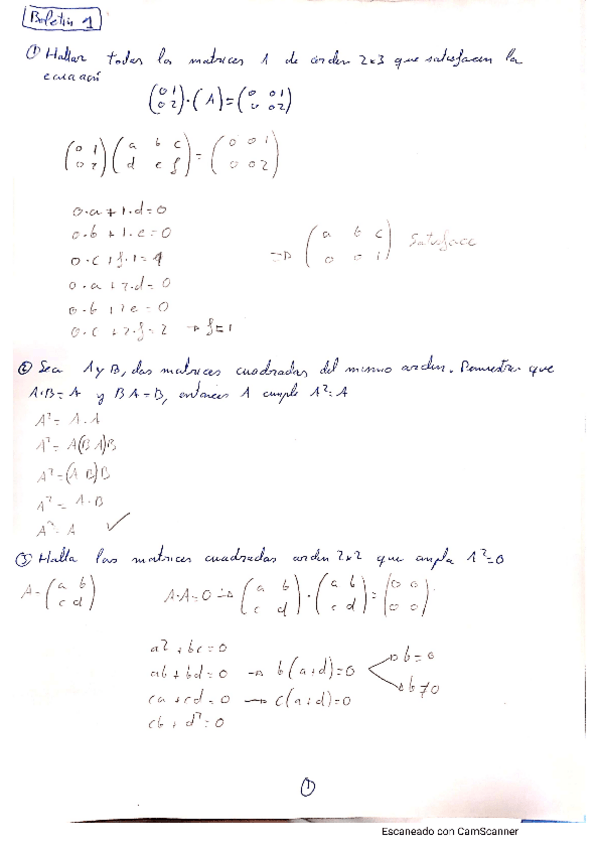 Boletín 1
① Hallar todas las matrices A de orden 2x3 que satisfacen la
ecuación
(0 1 / 0 2) · (A) = (0 0 1 / 0 0 2)
(0 1 / 0 2) (a b c / d e f) = (0 0 1 / 0 0 2)
0·a + 1·d = 0
0·b + 1·e = 0
0·c + f·1 = 1
0·a + 2·d = 0
0·b + 2e = 0
0·c + 2·f = 2 → f=1
⇒ (a b c / 0 0 1) Satisface
② Sea A y B, dos matrices cuadradas del mismo orden. Demostrar que
A·B = A y BA = B, entonces A cumple A² = A
A² = A·A
A² = A(BA)B
A² = (A B)B
A² = A·B
A² = A ✓
③ Halla las matrices cuadradas orden 2x2 que cumpla A²=0
A = (a b / c d) A·A=0 ⇒ (a b / c d) · (a b / c d) = (0 0 / 0 0)
a² + bc = 0
ab + bd = 0 → b(a+d)=0 → b=0
→ b≠0
ca + cd = 0 → c(a+d)=0
cb + d² = 0
①
Escaneado con CamScanner